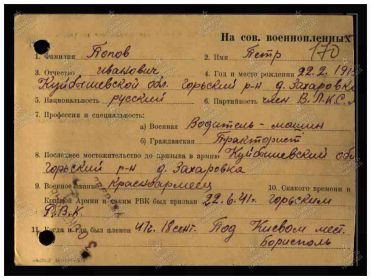 На сов. военнопленных
170
1. Фамилия Попов 2. Имя Петр
3. Отчество Иванович 4. Год и место рождения 22.2.191
Куйбышевской обл. горьский р-н д. Захаровка
5. Национальность русский 6. Партийность член В.Л.К.С.
7. Профессия и специальность:
а) Военная Водитель-машин
б) Гражданская Тракторист
8. Последнее местожительство до призыва в армию Куйбышевский об
горьский р-н д. Захаровка
9. Военное звание красноармеец 10. Скакого времени в
Красной Армии и каким РВК был призван 22.6.41г. горьским
Р.В.К.
11. Когда и где был пленен 41г. 18 сент. Под Киевом мест.
Борисполь